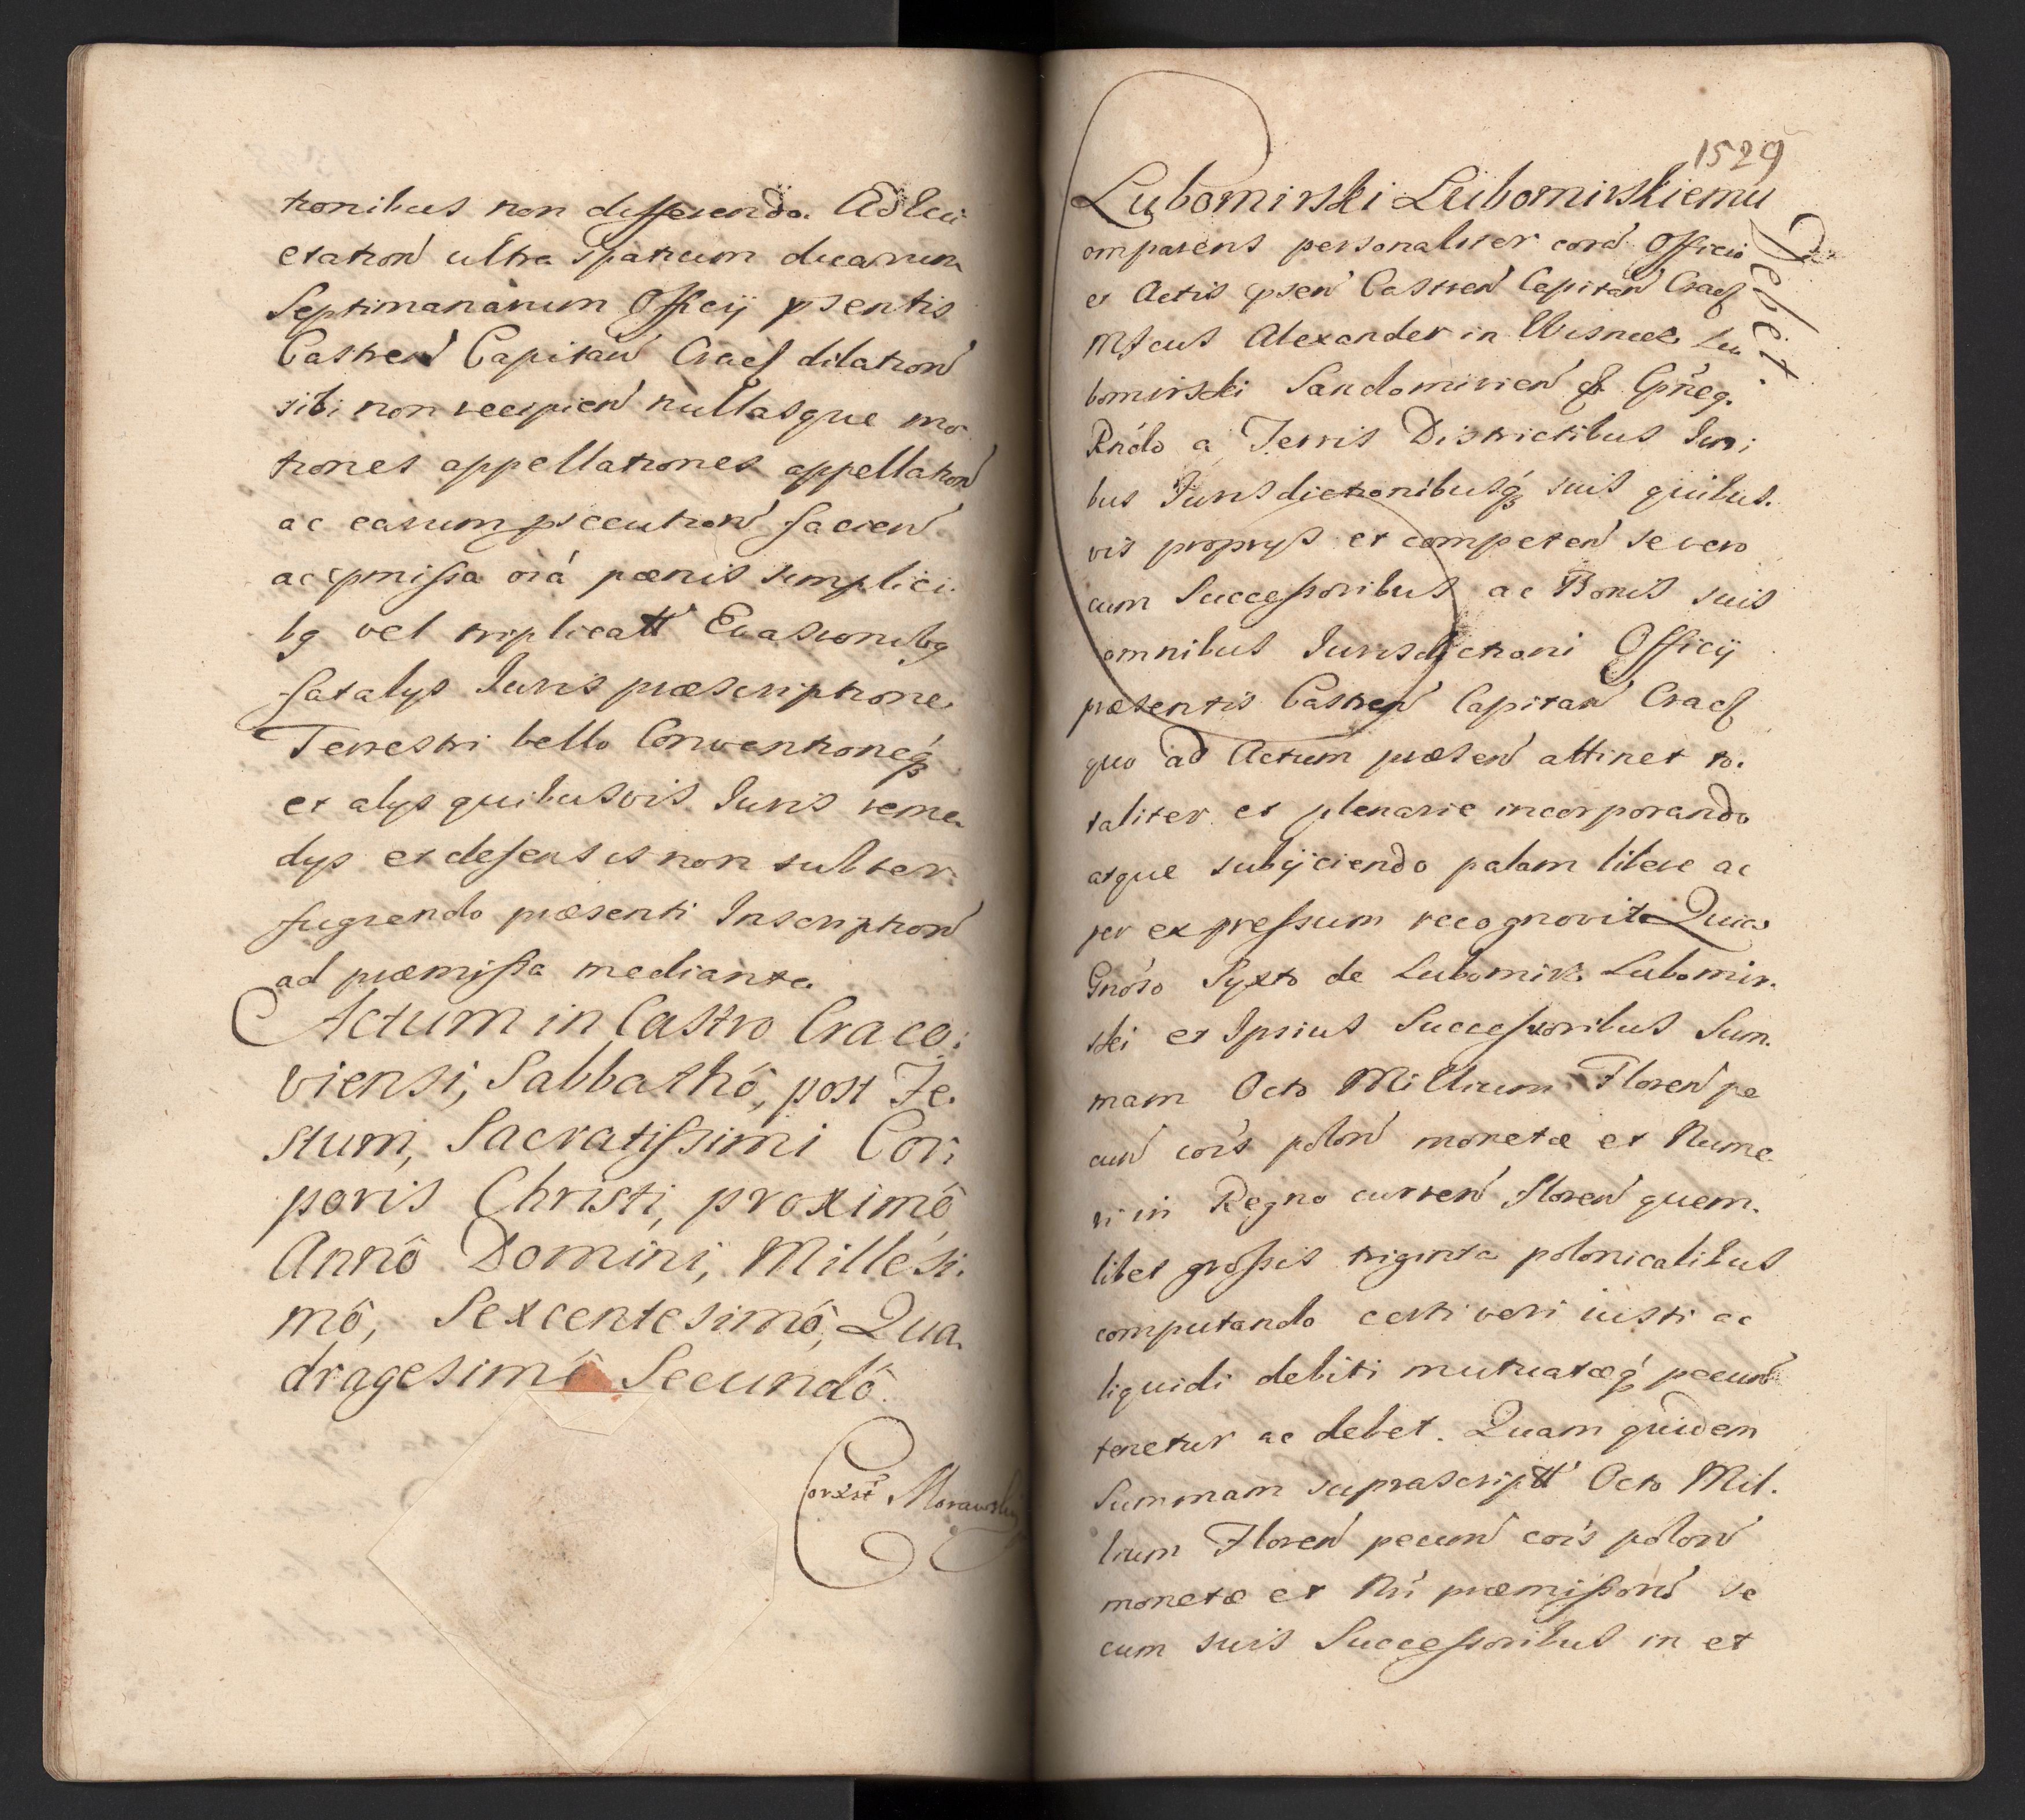 tionibus non differendo. Adlci
etation̄ ultra Spatium duarum
Septimanarum Officij psentis
Castren̄ Capitan̄ Crac̄ dilation̄
sibi non recipien̄ nullasque mo
tiones appellationes appellation̄
ac earum psecution̄ facien̄
ac pmissa oīa pœnis simplici.
bq vel triplicatt Evasionibq
fatalijs Iuris præscriptione
Terrestri bello Conventioneq́
et alijs quibusvis Iuris reme
dijs et defensis non subter
fugiendo præsenti Inscription̄
ad præmissa mediante.
Actum in Castro Craco:
viensi, Sabbathô, post Fe.
stum, Sacratissimi Cor:
poris Christi, proximô
Annô Domini, Millési.
mô, Sexcentesimô, Qua.
dragesimô Secundô.
Correxit Morawski
1529
Lubomirski Lubomirskiemu
Debet.
omparens personaliter corā Officio
et Actis psen̄ Castren̄ Capitan̄ Crac̄
Mfcus Alexander in Wisnicz Lu
bomirski Sandomirien̄ & Gn̄eq.
Rńdo a Terris Districtibus Iuri
bus Iurisdictionibusq́ suis quibus.
vis proprijs et competen̄ se vero
cum Successoribus ac Bonis suis
omnibus Iurisdictioni Officij
præsentis Castren̄ Capitan̄ Crac̄
quo ad Actum præsen̄ attinet to.
taliter et plenarie incorporando
atque subijciendo palam libere ac
per expressum recognovit Quia
Gnóso Syxto de Lubomirz Lubomir.
ski et Ipsius Successoribus Sum.
mam Octo Millium Floren̄ pe
cun̄ cōis polon̄ monetæ et Nume
ri in Regno curren̄ floren̄ quem.
libet grossis triginta polonicalibus
computando certi veri iusti ac
liquidi debiti mutuatæq́ pecun̄
tenetur ac debet. Quam quidem
Summam suprascriptt Octo Mil.
lium Floren̄ pecun̄ cōis polon̄
monetæ et Nrī præmisson̄ se
cum suis Successoribus in et